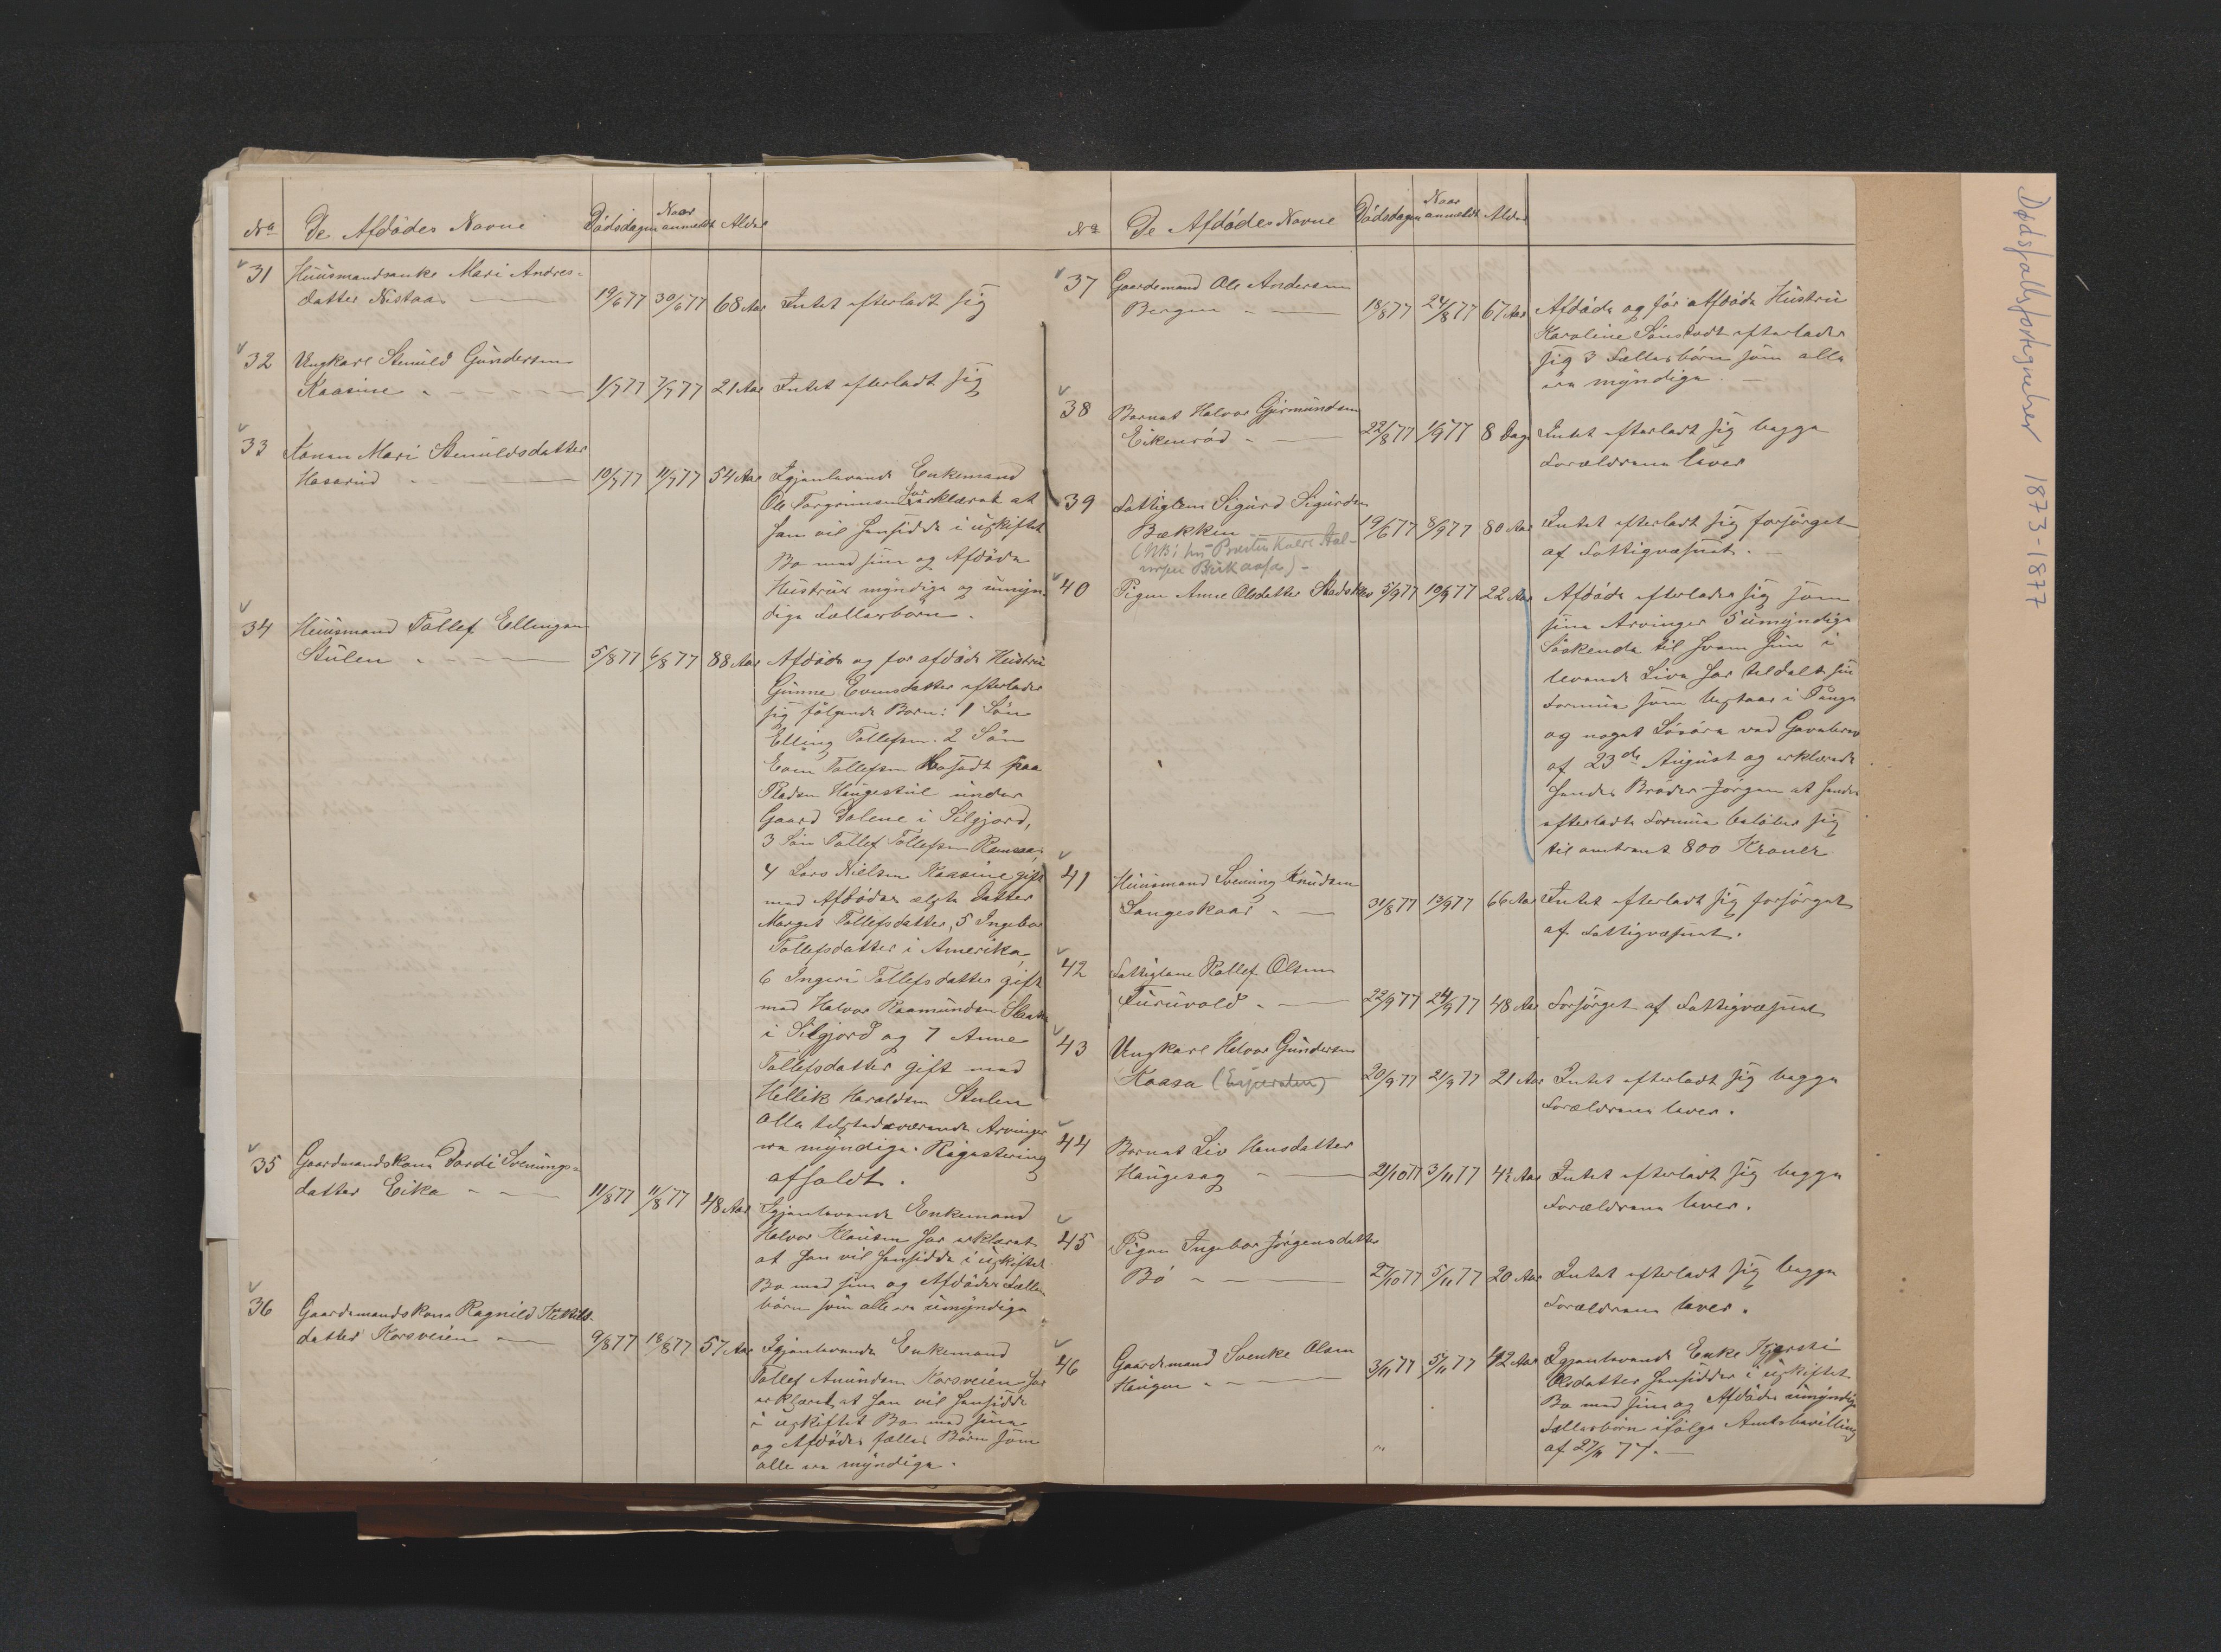 No De Afdödes Navne Dödsdagen Naar anmeldt Alder
31 Huusmandsenke Mari Andres-
datter Nistaa 19/6 77 30/6 77 68 Aar Intet efterladt sig
32 Ungkarl Stenuld Gundersen
Kaasine 1/7 77 7/7 77 21 Aar Intet efterladt sig
33 Konen Mari Stenuldsdatter
Haserud 10/7 77 11/7 77 54 Aar Igjenlevende Enkemand
Ole Torgrimsen har erklæret at
han vil hensidde i uskiftet
Bo med sine og Afdöde
Hustrus myndige og umyn-
dige Fællesbörn.
34 Huusmand Tollef Ellingsen
Stulen 5/8 77 6/8 77 88 Aar Afdöde og for afdöde Hustru
Gunne Evensdatter efterlader
sig fölgende Born: 1 Sön
Elling Tollefsen. 2 Sön
Even Tollefsen Bosadt paa
Pladsen Haugestul under
Gaard Dalene i Silgjord,
3 Sön Tollef Tollefsen
4 Lars Nielsen Kaasine gift
med Afdödes ægte Datter
Marget Tollefsdatter, 5 Ingebor
Tollefsdatter i Amerika,
6 Ingeri Tollefsdatter gift
med Halvor Raamundsen
i Silgjord og 7 Anne
Tollefsdatter gift med
Hellik Haraldsen Stulen
alle tilstedeværende Arvinger
ere myndige. Registrering
afholdt.
35 Gaardmandskone Dordi Svenungs-
datter Eika 11/8 77 11/8 77 48 Aar Igjenlevende Enkemand
Halvor Klausen har erklæret
at han vil hensidde i uskiftet
Bo med sine og Afdödes Fælles
börn som alle ere umyndige
36 Gaardemandskone Ragnild Kittils-
datter Korsveien 9/8 77 18/8 77 57 Aar Igjenlevende Enkemand
Tollef Amundsen Korsveien har
erklæret at han vil hensidde
i uskiftet Bo med sine
og Afdödes fælles Börn som
alle ere myndige.
No De Afdödes Navne Dödsdagen Naar anmeldt Alder
37 Gaardemand Ole Andersen
Bergen 18/8 77 24/8 77 67 Aar Afdöde og för afdöde Hustru
Karoline efterlader
sig 3 Fællesbörn som alle
ere myndige.
38 Barnet Halvor Gjermundsen
Eikenröd 22/8 77 1/9 77 8 Dage Intet efterladt sig begge
Forældrene lever
39 Fattiglem Sigurd Sigurdsen
Bækken 19/6 77 8/9 77 80 Aar Intet efterladt sig forsörget
(NB:
af Fattigvæsnet.
40 Pigen Anne Olsdatter 5/9 77 10/9 77 22 Aar Afdöde efterlader sig som
sine Arvinger 5 umyndige
Söskende til hvem hun i
levende Live har tildelt sin
Formue som bestaar i Penge
og noget Lösöre ved Gavebrev
af 23de August og erklærede
hendes Broder Jörgen at hendes
efterladte Formue belöber sig
til omtrent 800 Kroner
41 Huusmand Svenung Knudsen
Langeskaar 31/8 77 13/9 77 66 Aar Intet efterladt sig forsörget
af Fattigvæsnet.
42 Fattiglem Rollef Olsen
Furuvold 22/9 77 24/9 77 48 Aar Forsörget af Fattigvæsnet
43 Ungkarl Halvor Gundersen
Kaasa 20/9 77 21/9 77 21 Aar Intet efterladt sig begge
Forældrene lever.
44 Barnet Liv Hansdatter
Haugesag 21/10 77 3/11 77 4½ Aar Intet efterladt sig begge
Forældrene lever.
45 Pigen Ingebor Jörgensdatter
Bö 27/10 77 5/11 77 20 Aar Intet efterladt sig begge
Forældrene lever.
46 Gaardemand Svenke Olsen
Haugen 3/11 77 5/11 77 42 Aar Igjenlevende Enke Kjersti
Olsdatter hensidder i uskiftet
Bo med sine og Afdödes umyndige
Fællesbörn ifölge Amtsbevilling
af 27/11 77.
Dødsfallsfortegnelser 1873-1877